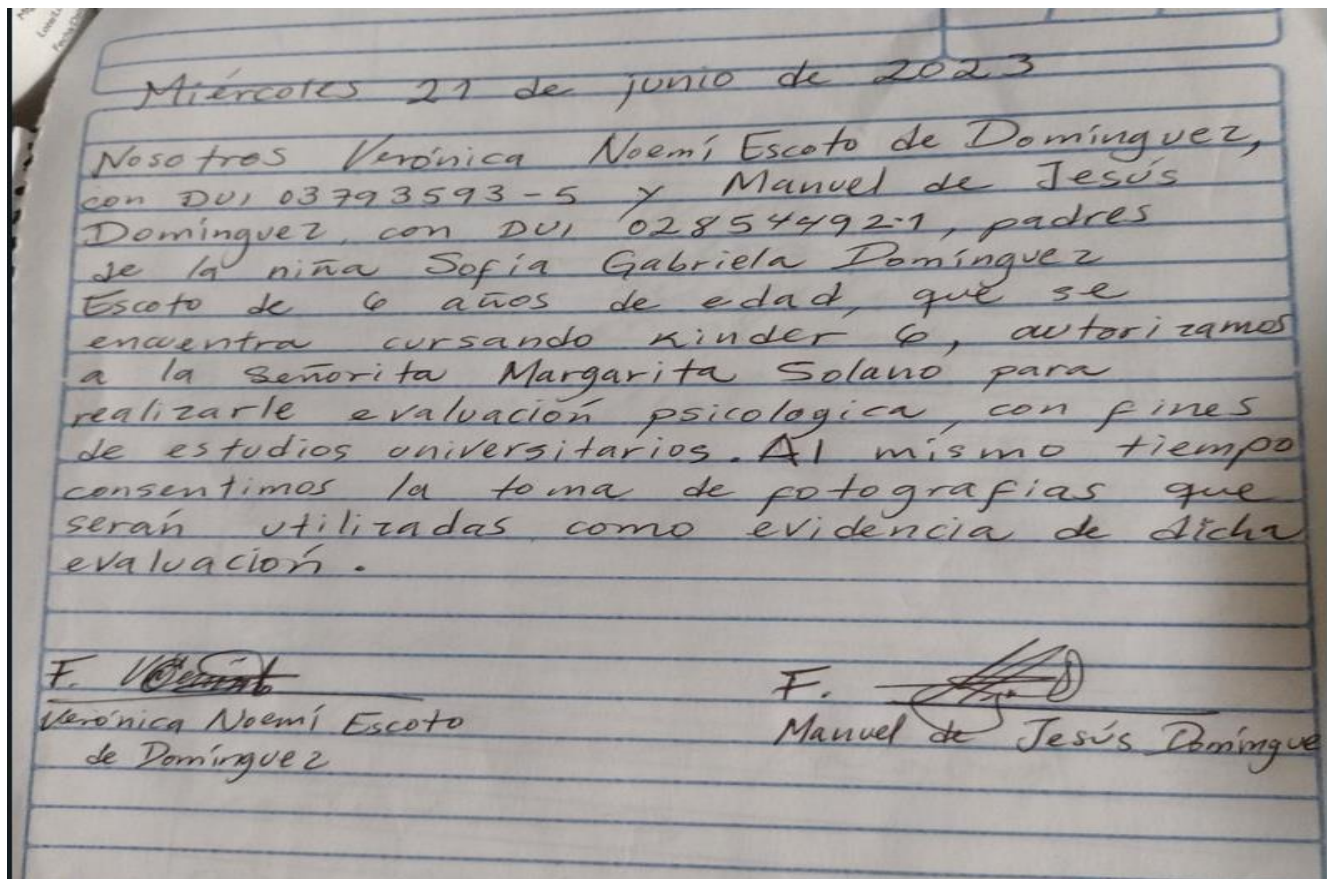 Miércoles 21 de junio de 2023
Nosotros Verónica Noemí Escoto de Domínguez,
con DUI 03793593-5 y Manuel de Jesús
Domínguez, con DUI 02854492-1, padres
de la niña Sofía Gabriela Domínguez
Escoto de 6 años de edad, que se
encuentra cursando Kinder 6, autorizamos
a la Señorita Margarita Solano para
realizarle evaluación psicologica, con fines
de estudios universitarios. Al mismo tiempo
consentimos la toma de fotografias que
serán utilizadas como evidencia de dicha
evaluación.
F.
F.
Verónica Noemí Escoto
de Domínguez
Manuel de Jesús Domíngue